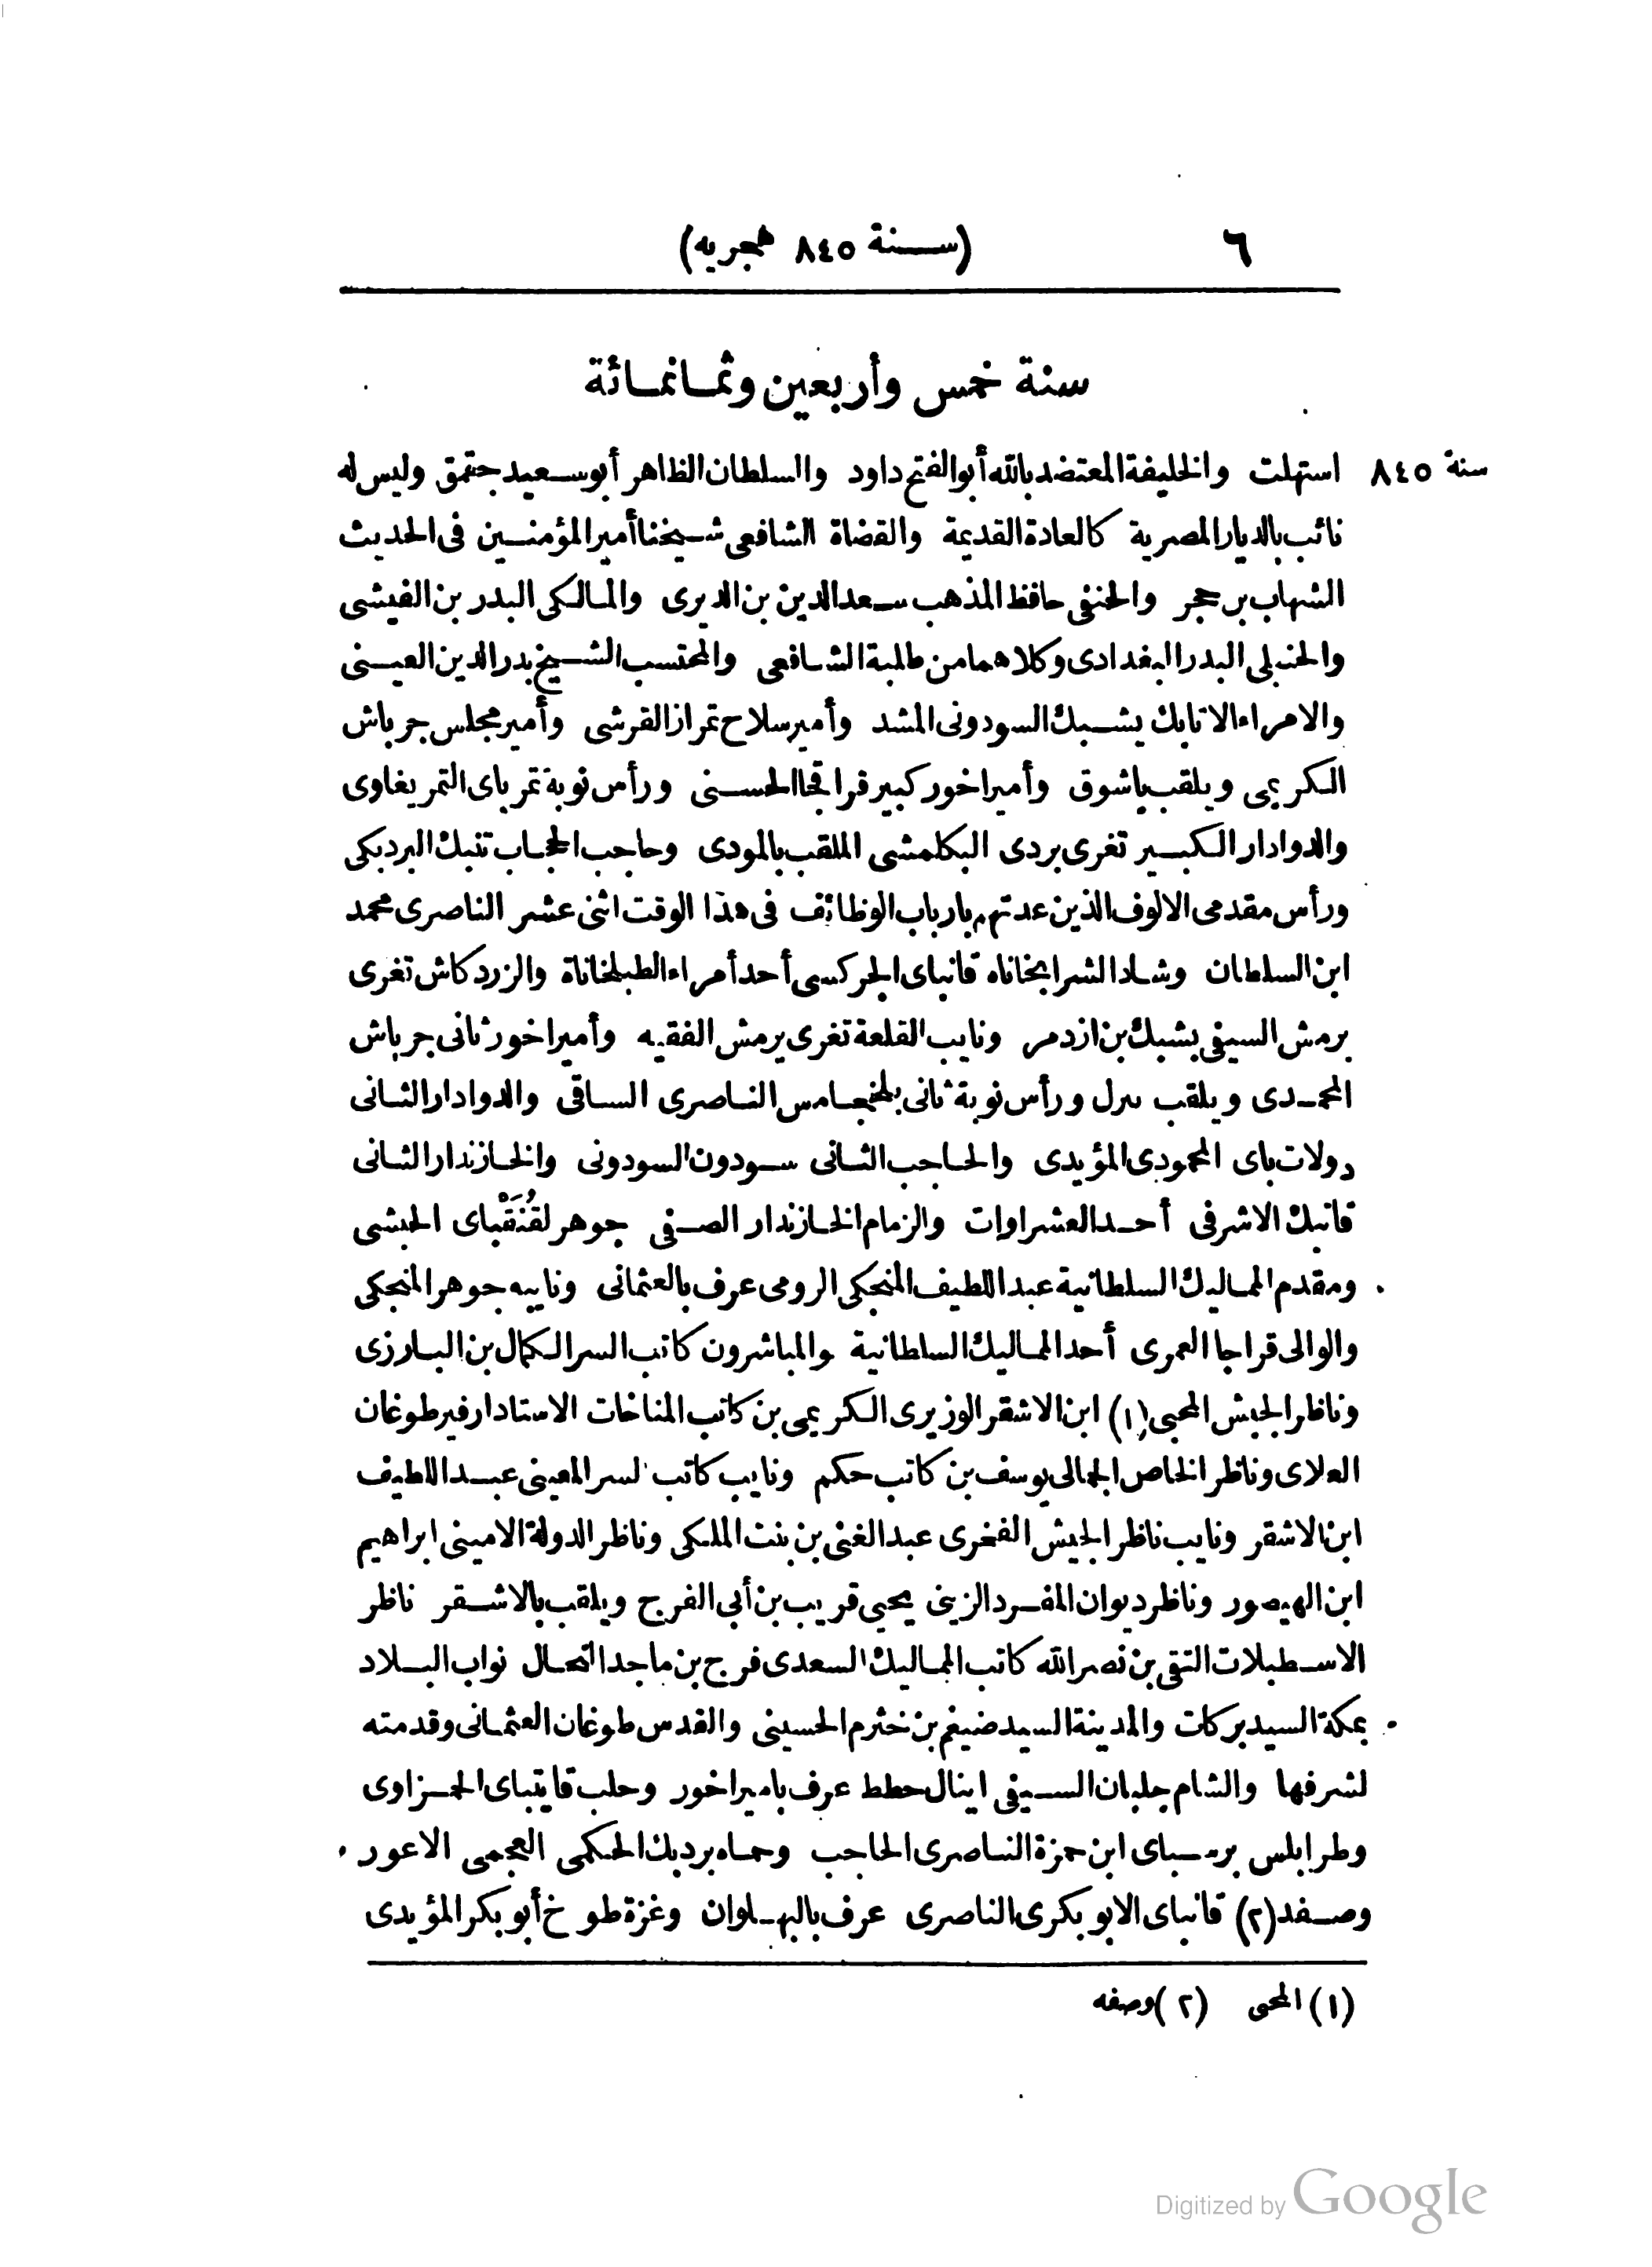 ٦
(سنة ٨٤٥ هجريه)
سنة خمس وأربعين وثمانمائة
سنة ٨٤٥ استهلت والخليفة المعتضد بالله أبو الفتح داود والسلطان الظاهر أبو سعيد جتمق وليس له
نائب بالديار المصرية كالعادة القديمة والقضاة الشافعى شيخنا أمير المؤمنين فى الحديث
الشهاب بن حجر والحنفى حافظ المذهب سعد الدين بن الديرى والمالكى البدر بن الفيشى
والحنبلى البدر البغدادى وكلاهما من طلبة الشافعى والمحتسب الشيخ بدر الدين العينى
والامراء الاتابك يشبك السودونى المشد وأمير سلاح تمراز القرشى وأمير مجلس جرباش
الكريمى ويلقب باشوق وأمير اخور كبير قراقجا الحسنى ورأس نوبة تمرباى التمر يغاوى
والدوادار الكبير تغرى بردى البكلمشى الملقب بالمودى وحاجب الحجاب تنبك البردبكى
ورأس مقدمى الالوف الذين عدتهم بارباب الوظائف فى هذا الوقت اثنى عشر الناصرى محمد
ابن السلطان وشاد الشرابخاناه قانباى الجركسى أحد أمراء الطبلخاناة والزردكاش تغرى
برمش السيفى يشبك بن ازدمر ونايب القلعة تغرى برمش الفقيه وأمير اخور ثانى جرباش
المحمدى ويلقب برل ورأس نوبة ثانى يلخجا من الناصرى الساقى والدوادار الثانى
دولات باى المحمودى المؤيدى والحاجب الثانى سودون السودونى والخازندار الثانى
قانبك الاشرفى أحد العشراوات والزمام الخازندار الصفى جوهر لقُنَقْباى الحبشى
ومقدم المماليك السلطانية عبد اللطيف المنجكى الرومى عرف بالعثمانى ونايبه جوهر المنجكى
والوالى قراجا العمرى أحد المماليك السلطانية والمباشرون كاتب السر الكمال بن البارزى
وناظر الجيش المحبى (١) ابن الاشقر الوزيرى الكريمى بن كاتب المناخات الاستادار فيرطوغان
العلاى وناظر الخاص الجمالى يوسف بن كاتب حكم ونايب كاتب السر المعينى عبد اللطيف
ابن الاشقر ونايب ناظر الجيش الفخرى عبد الغنى بن بنت الملكى وناظر الدولة الامينى ابراهيم
ابن الهيصور وناظر ديوان المفرد الزينى يحيى قريب بن أبى الفرج ويلقب بالاشقر ناظر
الاسطبلات التقى بن نصر الله كاتب المماليك السعدى فرج بن ماجد النحال نواب البلاد
بمكة السيد بركات والمدينة السيد ضيغم بن خثرم الحسينى والقدس طوغان العثمانى وقدمته
لشرفها والشام جلبان السيفى اينال حطط عرف بامير اخور وحلب قايتباى الحمزاوى
وطرابلس برسباى ابن حمزة الناصرى الحاجب وحماه بردبك الحكمى العجمى الاعور
وصفد (٢) قانباى الابو بكرى الناصرى عرف بالبهلوان وغزة طوخ أبو بكر المؤيدى
(١) المحى (٢) وصفه
Digitized by Google